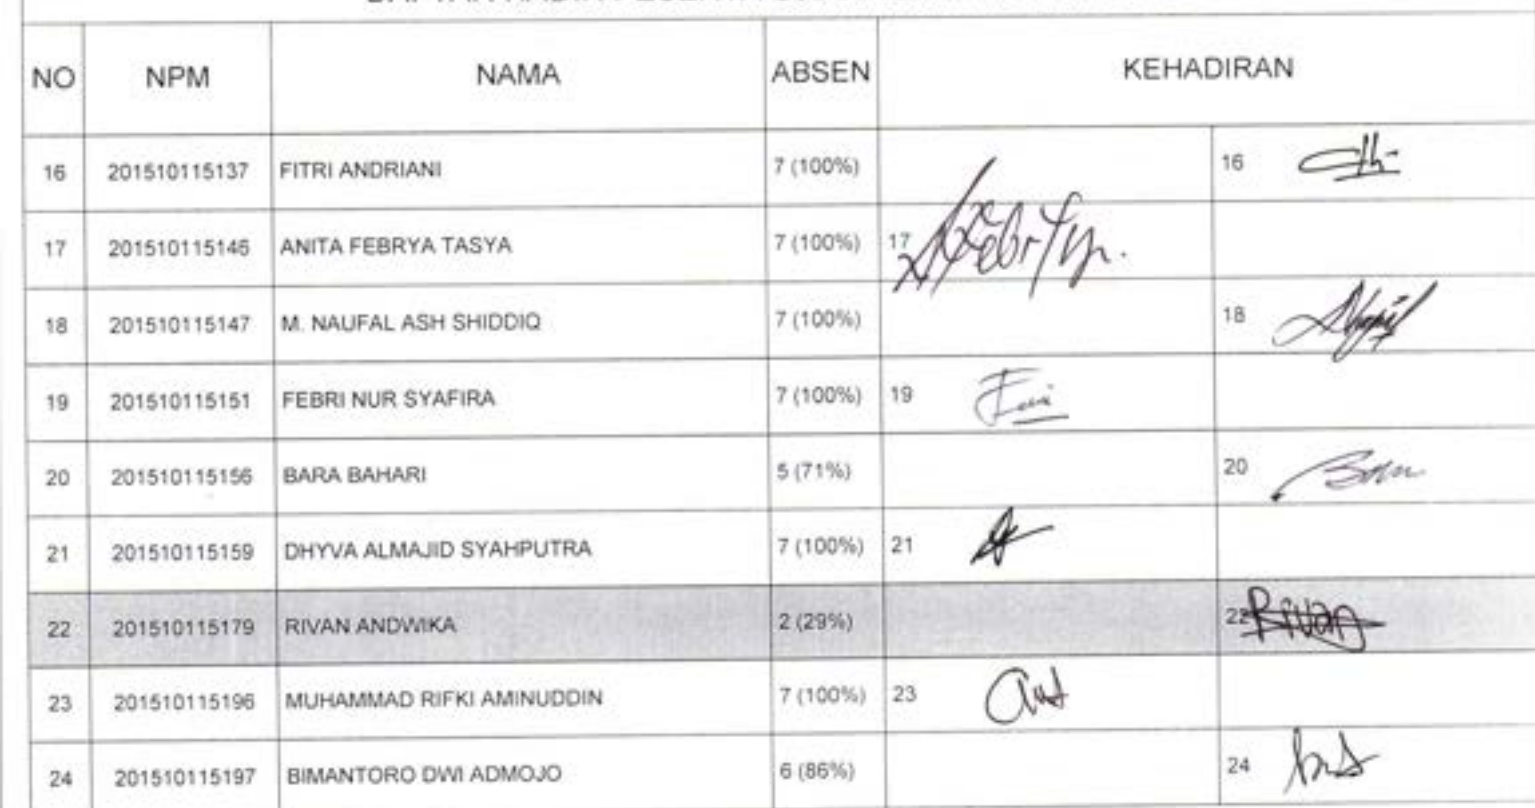 NO NPM NAMA ABSEN KEHADIRAN
16 201510115137 FITRI ANDRIANI 7 (100%) 16
17 201510115146 ANITA FEBRYA TASYA 7 (100%) 17
18 201510115147 M. NAUFAL ASH SHIDDIQ 7 (100%) 18
19 201510115151 FEBRI NUR SYAFIRA 7 (100%) 19
20 201510115156 BARA BAHARI 5 (71%) 20
21 201510115159 DHYVA ALMAJID SYAHPUTRA 7 (100%) 21
22 201510115179 RIVAN ANDWIKA 2 (29%) 22 Rivan
23 201510115196 MUHAMMAD RIFKI AMINUDDIN 7 (100%) 23
24 201510115197 BIMANTORO DWI ADMOJO 6 (86%) 24